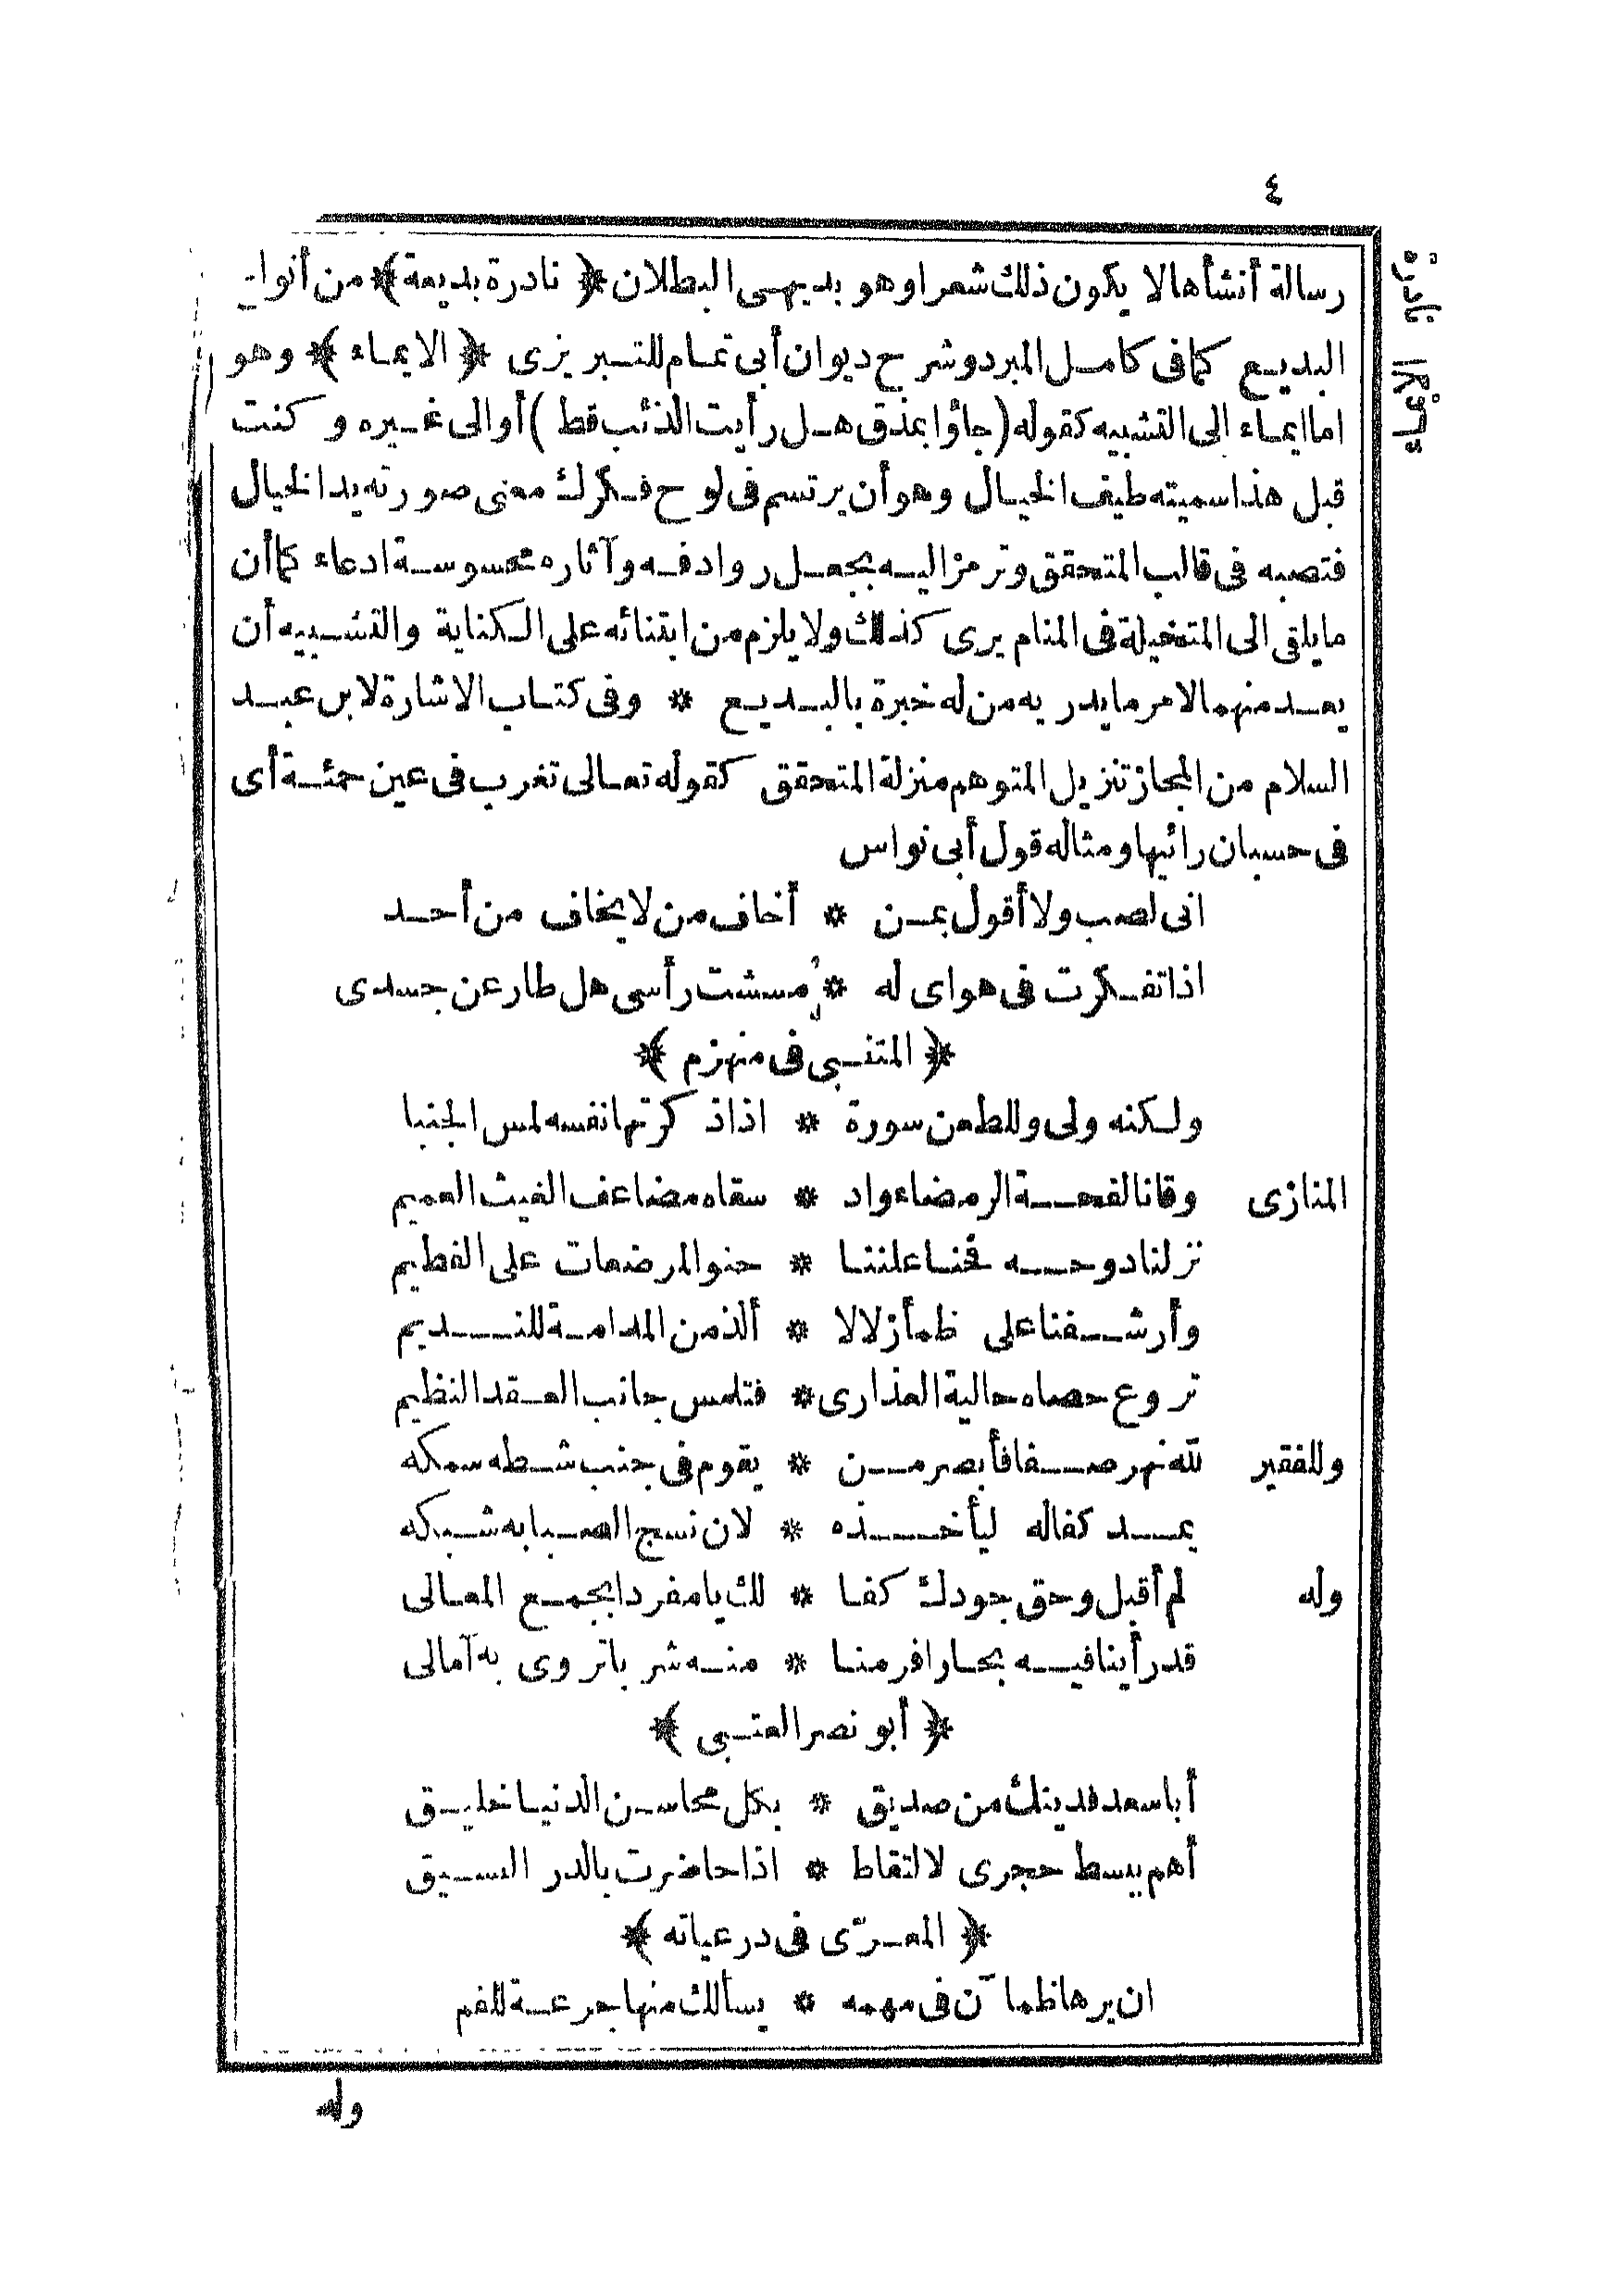 ٤
رسالة أنشأها لا يكون ذلك شعرا وهو بديهى البطلان ﴿ نادرة بديعة ﴾ من أنواع
البديع كما فى كامل المبرد وشرح ديوان أبى تمام للتبريزى ﴿ الايماء ﴾ وهو
اما ايماء الى التشبيه كقوله ( جاؤا بمذق هل رأيت الذئب قط ) أو الى غيره وكنت
قبل هذا سميته طيف الخيال وهو أن يرتسم فى لوح فكرك معنى صورته يد الخيال
فتصبه فى قالب المتحقق وترمز اليه بجعل روادفه وآثاره محسوسة ادعاء كما أن
ما يلقى الى المتخيلة فى المنام يرى كذلك ولا يلزم من ابتنائه على الكناية والتشبيه أن
يعد منهما لامر ما يدريه من له خبرة بالبديع * وفى كتاب الاشارة لابن عبد
السلام من المجاز تنزيل المتوهم منزلة المتحقق كقوله تعالى تغرب فى عين حمئة أى
فى حسبان رائيها ومثاله قول أبى نواس
انى لصب ولا أقول بمن * أخاف من لا يخاف من أحد
اذا تفكرت فى هواى له * مسشت رأسى هل طار عن جسدى
﴿ المتنبى فى منهزم ﴾
ولكنه ولى وللطعن سورة * اذا ذكرتها نفسه لمس الجنبا
المنازى وقانا لفحة الرمضاء واد * سقاه مضاعف الغيث العميم
نزلنا دوحه فحنا علننا * حنو المرضعات على الفطيم
وأرشفنا على ظمأ زلالا * ألذ من المدامة للنديم
تروع حصاه حالية العذارى * فتلمس جانب العقد النظيم
وللفقير لله نهر صفا فأبصر من * يقوم فى جنب شطه سمكه
يمد كفا له ليأخذه * لان نسج الصبا به شبكه
وله لم أقبل وحق جودك كفا * لك يا مفردا بجمع المعالى
قد رأينا فيه بحارا فرمنا * منه شربا تروى به آمالى
﴿ أبو نصر العتبى ﴾
أبا سعد فديتك من صديق * بكل محاسن الدنيا خليق
أهم ببسط حجرى لالتقاط * اذا حاضرت بالدر النسيق
﴿ المعرّى فى درعياته ﴾
ان يرها ظمآن فى مهمه * يسألك منها جرعة للفم
وله
نادرة
الايماء